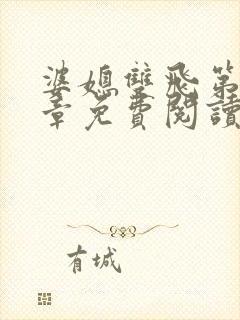 婆媳雙飛第
章免費閱讀
有城